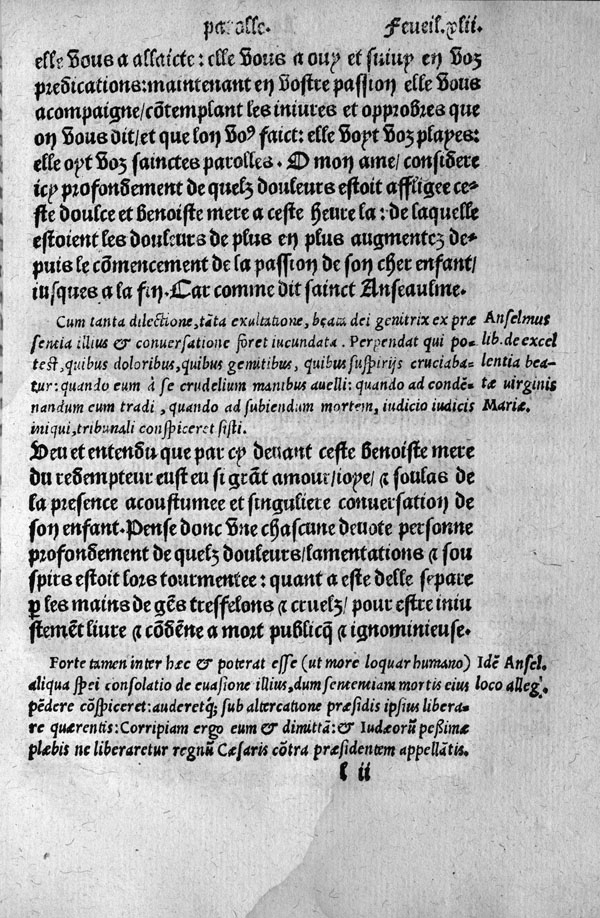 parolle. Feueil.xlii.
elle vous a allaicte: elle vous a ouy et suiuy en voz
predications:maintenant en vostre passion elle vous
acompaigne/cõtemplant les iniures et opprobres que
on vous dit/et que lon voꝰ faict: elle voyt voz playes:
elle oyt voz sainctes parolles. O mon ame/ considere
icy profondement de quelz douleurs estoit affligee ce-
ste doulce et benoiste mere a ceste heure la: de laquelle
estoient les douleurs de plus en plus augmentez de-
puis le cõmencement de la passion de son cher enfant/
iusques a la fin. Car comme dit sainct Anseaulme.
Cum tanta dilectione, tãta exultatione, beata dei genitrix ex præ
sentia illius & conuersatione foret iucundata. Perpendat qui po-
test, quibus doloribus, quibus gemitibus, quibus suspirijs cruciaba-
tur: quando eum à se crudelium manibus auelli: quando ad condẽ-
nandum eum tradi, quando ad subiendum mortem, iudicio iudicis
iniqui, tribunali conspiceret sisti.
Anselmus
lib. de excel
lentia bea-
tæ virginis
Mariæ.
Veu et entendu que par cy deuant ceste benoiste mere
du redempteur eust eu si grãt amour/ioye/ ⁊ soulas de
la presence acoustumee et singuliere conuersation de
son enfant. Pense donc vne chascune deuote personne
profondement de quelz douleurs/lamentations ⁊ sou
spirs estoit lors tourmentee: quant a este delle separe
ꝑ les mains de gẽs tresfelons ⁊ cruelz/ pour estre iniu
stemẽt liure ⁊ cõdẽne a mort publicq̃ ⁊ ignominieuse.
Forte tamen inter hæc & poterat esse (ut more loquar humano)
aliqua spei consolatio de euasione illius, dum sententiam mortis eius
pẽdere cõspiceret: auderetq; sub altercatione præsidis ipsius libera-
re quærentis: Corripiam ergo eum & dimittã: & Iudæorũ peßimæ
plæbis ne liberaretur regnũ Cæsaris cõtra præsidentem appellãtis.
Idẽ Ansel.
loco alleg.
l ii